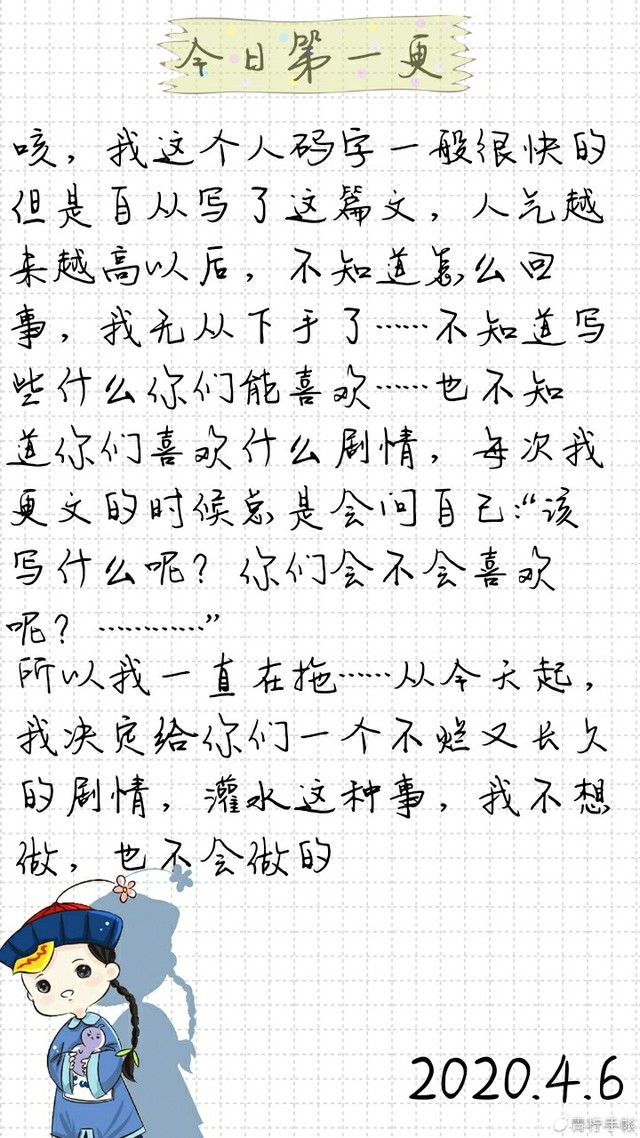 今日第一更
咳，我这个人码字一般很快的
但是自从写了这篇文，人气越
来越高以后，不知道怎么回
事，我无从下手了……不知道写
些什么你们能喜欢……也不知
道你们喜欢什么剧情，每次我
更文的时候总是会问自己:“该
写什么呢？你们会不会喜欢
呢？…………”
所以我一直在拖……从今天起，
我决定给你们一个不烂又长久
的剧情，灌水这种事，我不想
做，也不会做的
2020.4.6
青柠手帐